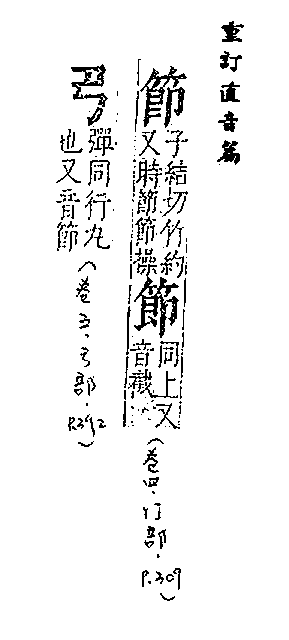 重訂直音篇
節子結切竹約
又時節節操
節同上又
音截
(卷四.竹部.P.309)
彈同行丸
也又音節
(卷五.弓部.)